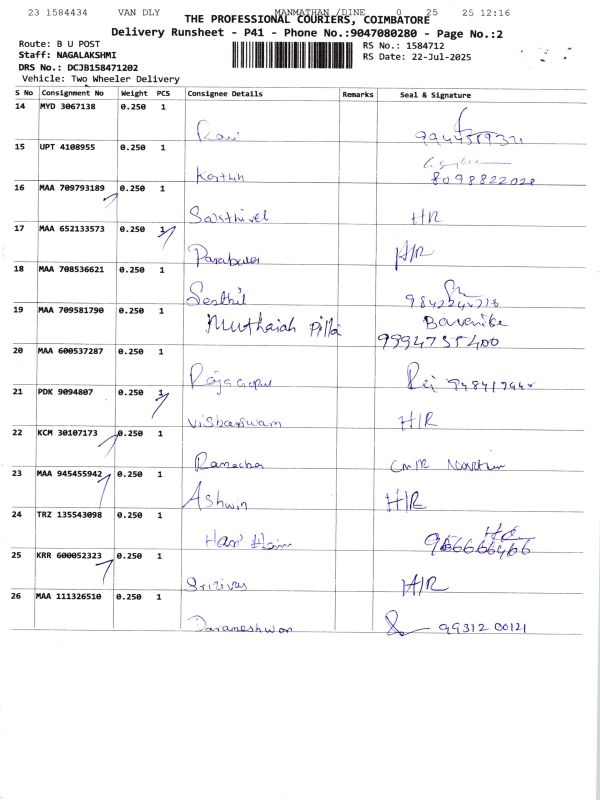 23 1584434 VAN DLY MANMATHAN /DINE 0 25 25 12:16
THE PROFESSIONAL COURIERS, COIMBATORE
Delivery Runsheet - P41 - Phone No.:9047080280 - Page No.:2
Route: B U POST RS No.: 1584712
Staff: NAGALAKSHMI RS Date: 22-Jul-2025
DRS No.: DCJB158471202
Vehicle: Two Wheeler Delivery
S No Consignment No Weight PCS Consignee Details Remarks Seal & Signature
14 MYD 3067138 0.250 1
Ravi
15 UPT 4108955 0.250 1
Karthik 8098822028
16 MAA 709793189 0.250 1
Sakthivel H/R
17 MAA 652133573 0.250 1
H/R
18 MAA 708536621 0.250 1
Senthil
19 MAA 709581790 0.250 1
Muthaiah Pillai 9994755400
20 MAA 600537287 0.250 1
Rajagopal
21 PDK 9094807 0.250 1
H/R
22 KCM 30107173 0.250 1
23 MAA 945455942 0.250 1
Ashwin H/R
24 TRZ 135543098 0.250 1
Hari
25 KRR 600052323 0.250 1
Srinivas H/R
26 MAA 111326510 0.250 1
Parameshwar 99312 00121